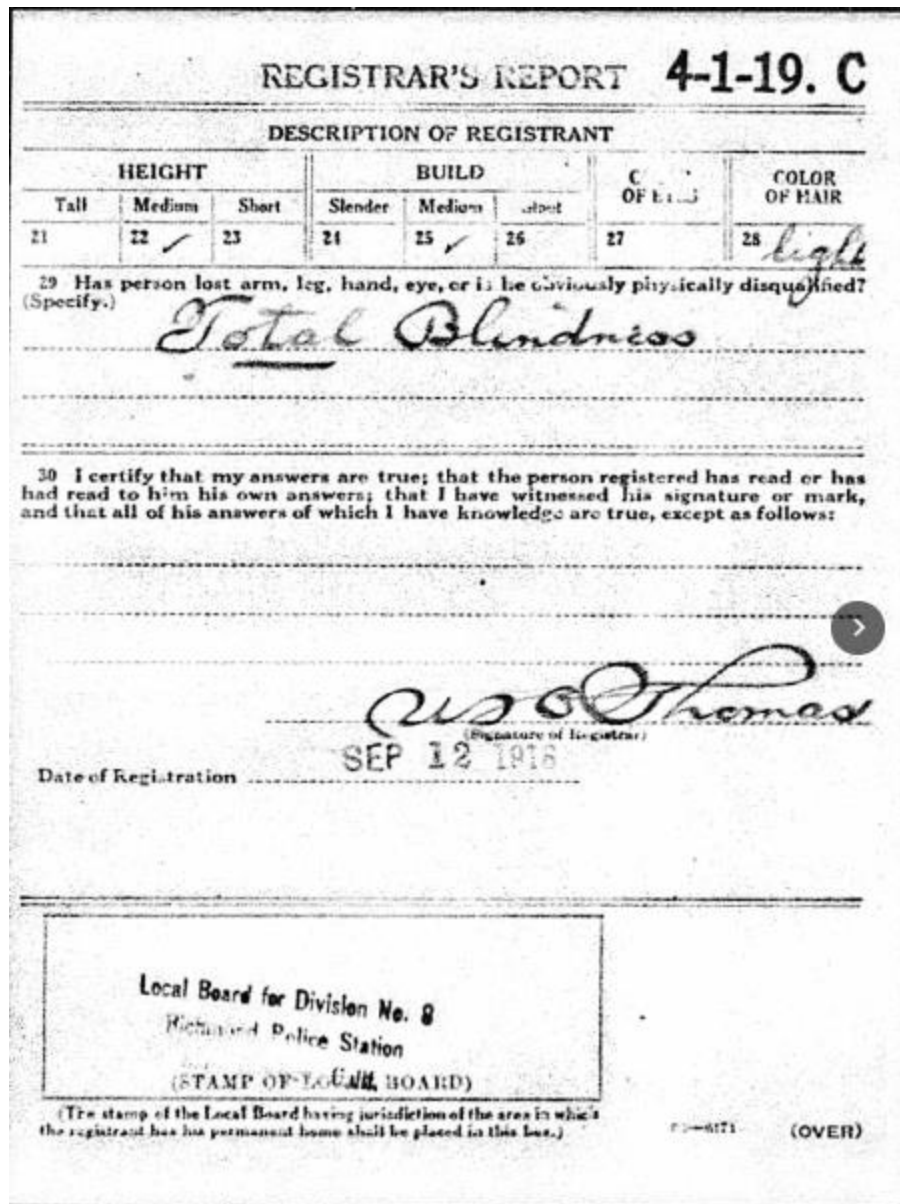 REGISTRAR'S REPORT 4-1-19. C
DESCRIPTION OF REGISTRANT
HEIGHT BUILD COLOR
OF HAIR
Tall Medium Short Slender Medium Stout
21 22 ✓ 23 24 25 ✓ 26 27 28 light
29 Has person lost arm, leg, hand, eye, or is he obviously physically disqualified?
(Specify.)
Total Blindness
30 I certify that my answers are true; that the person registered has read or has
had read to him his own answers; that I have witnessed his signature or mark,
and that all of his answers of which I have knowledge are true, except as follows:
Thomas
(Signature of Registrar)
SEP 12 1918
Date of Registration
Local Board for Division No. 8
Richmond Police Station
(STAMP OF LOCAL BOARD)
(The stamp of the Local Board having jurisdiction of the area in which
the registrant has his permanent home shall be placed in this box.)
(OVER)